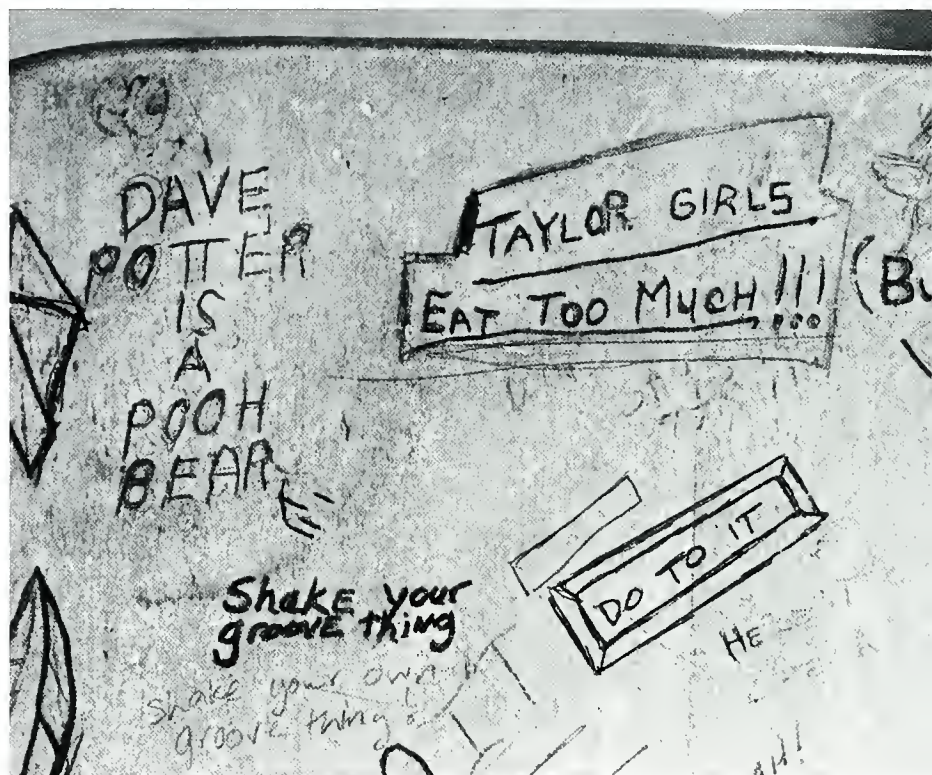 DAVE
POTTER
IS
A
POOH
BEAR
TAYLOR GIRLS
EAT TOO MUCH!!!
(Bu
DO TO IT
Shake your
groove thing
shake your own
groove thing
HE